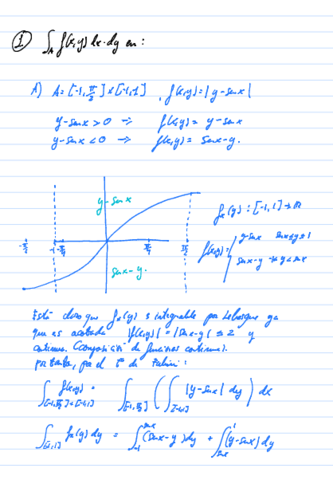 ① ∫_A f(x,y) dx·dy en:
A) A = [-1, π/2] × [-1,1] , f(x,y) = | y - sen x |
y - sen x > 0 → f(x,y) = y - sen x
y - sen x < 0 → f(x,y) = sen x - y.
y - sen x
f_x(y) : [-1,1] → ℝ
-π/2 -1 π/2
f(x,y) = { y - sen x sen x ≤ y ≤ 1
sen x - y -1 ≤ y ≤ sen x
sen x - y.
Está claro que f_x(y) es integrable por Lebesgue ya
que es acotada |f(x,y)| = |sen x - y| ≤ 2 y
continua. (Composición de funciones continuas).
por tanto, por el t^a de Fubini:
∫_{[-1,π/2]×[-1,1]} f(x,y) = ∫_{[-1,π/2]} ( ∫_{[-1,1]} |y - sen x| dy ) dx
∫_{[-1,1]} f_x(y) dy = ∫_{-1}^{sen x} (sen x - y) dy + ∫_{sen x}^{1} (y - sen x) dy